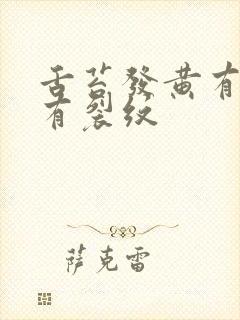 舌苔發黄有
有裂纹
萨克雷